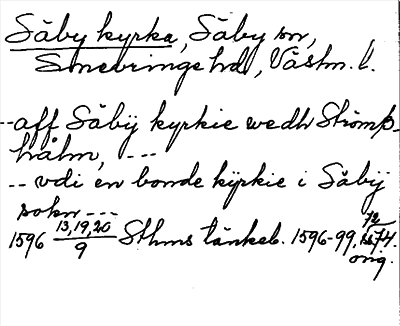 Säby kyrka, Säby sn,
Snevringe hd, Västm. l.
--aff Säbÿ kyrkie wedh Strömβ-
hålm, ---
-- vdi en bonde kÿrkie i Säbÿ
sokn ---
1596 13,19,20/9 Sthms tänkeb. 1596-99, s. 72
74.
orig.